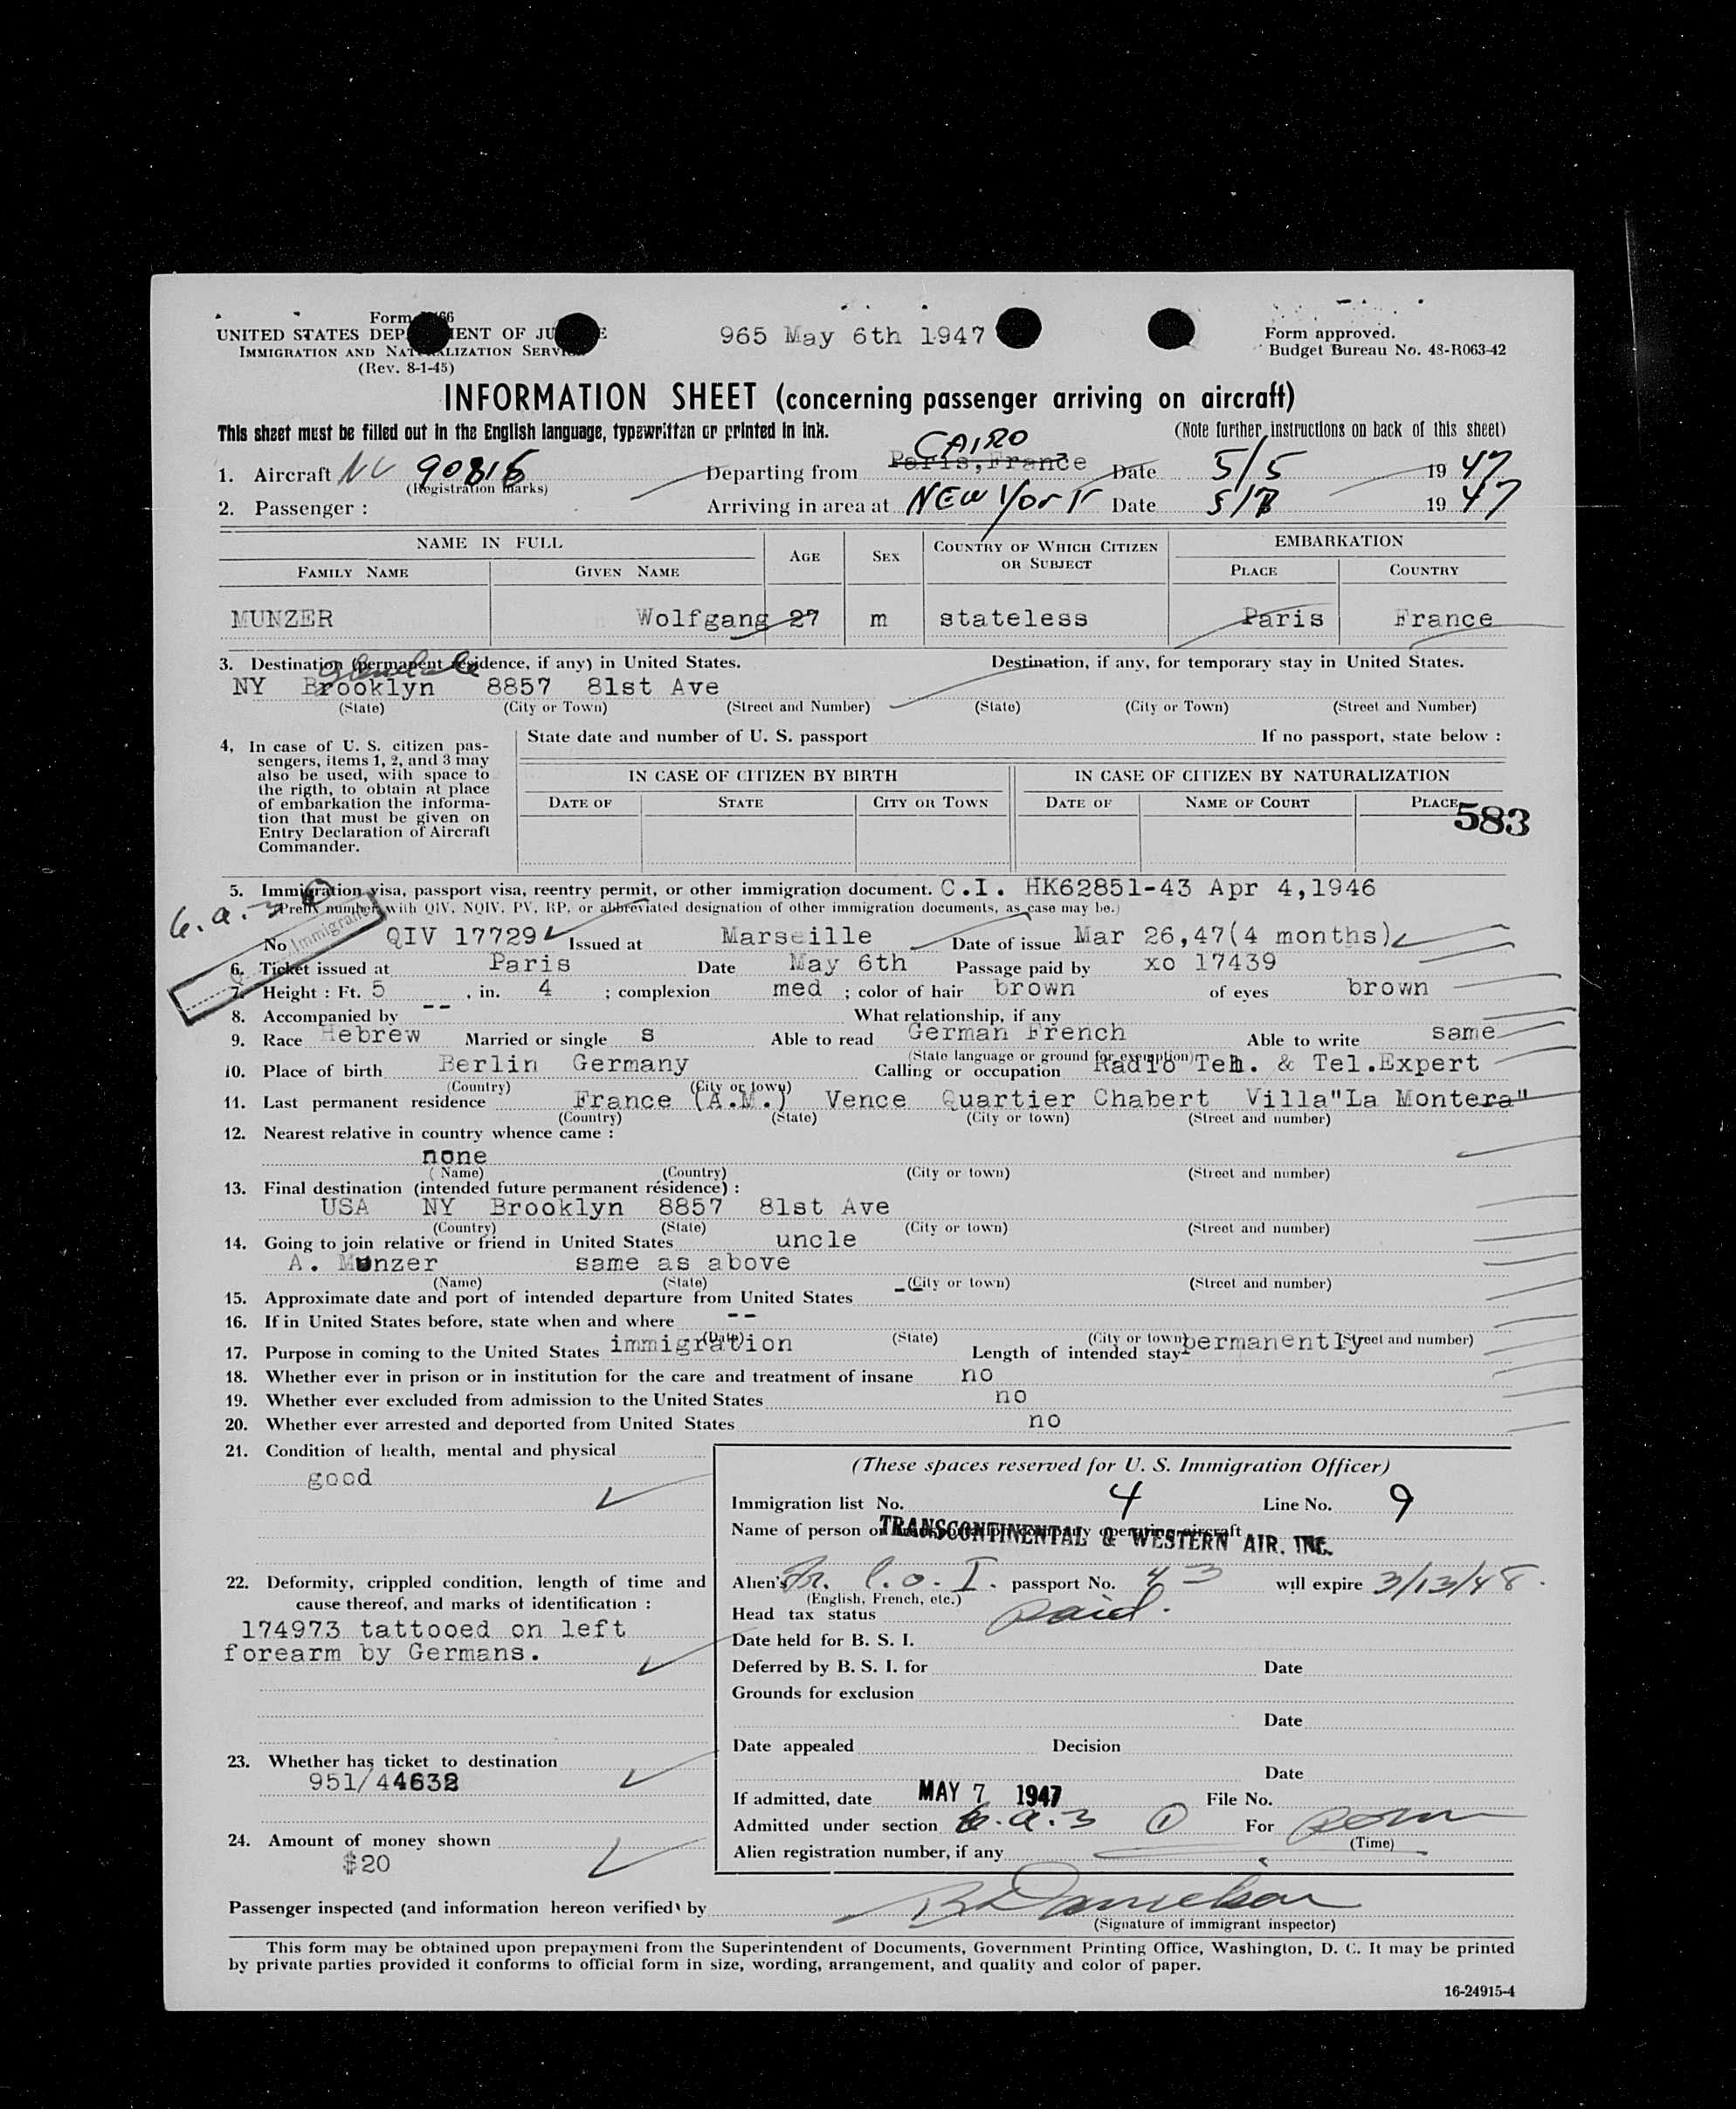 965 May 6th 1947
UNITED STATES DEP
IMMIGRATION AND NATURALIZATION SERVICE
(Rev. 8-1-45)
Form approved.
Budget Bureau No. 48-R063-42
INFORMATION SHEET (concerning passenger arriving on aircraft)
This sheet must be filled out in the English language, typewritten or printed in ink.
(Note further instructions on back of this sheet)
CAIRO
1. Aircraft NC 90816 Departing from Paris, France Date 5/5 19 47
(Registration marks)
2. Passenger : Arriving in area at NEW York Date 5/7 19 47
NAME IN FULL AGE SEX COUNTRY OF WHICH CITIZEN OR SUBJECT EMBARKATION
FAMILY NAME GIVEN NAME PLACE COUNTRY
MUNZER Wolfgang 27 m stateless Paris France
3. Destination (permanent residence, if any) in United States. Destination, if any, for temporary stay in United States.
Glendale
NY Brooklyn 8857 81st Ave
(State) (City or Town) (Street and Number) (State) (City or Town) (Street and Number)
4. In case of U. S. citizen pas-
sengers, items 1, 2, and 3 may
also be used, with space to
the rigth, to obtain at place
of embarkation the informa-
tion that must be given on
Entry Declaration of Aircraft
Commander.
State date and number of U. S. passport If no passport, state below :
IN CASE OF CITIZEN BY BIRTH IN CASE OF CITIZEN BY NATURALIZATION
DATE OF STATE CITY OR TOWN DATE OF NAME OF COURT PLACE
583
5. Immigration visa, passport visa, reentry permit, or other immigration document. C.I. HK62851-43 Apr 4,1946
(Prefix number with QIV, NQIV, PV, RP, or abbreviated designation of other immigration documents, as case may be.)
6.a.3
Immigrant
No QIV 17729 Issued at Marseille Date of issue Mar 26,47(4 months)
6. Ticket issued at Paris Date May 6th Passage paid by xo 17439
7. Height : Ft. 5 , in. 4 ; complexion med ; color of hair brown of eyes brown
8. Accompanied by -- What relationship, if any
9. Race Hebrew Married or single s Able to read German French Able to write same
(State language or ground for exemption)
10. Place of birth Berlin Germany Calling or occupation Radio Teh. & Tel.Expert
(Country) (City or town)
11. Last permanent residence France (A.M.) Vence Quartier Chabert Villa"La Montera"
(Country) (State) (City or town) (Street and number)
12. Nearest relative in country whence came :
none
(Name) (Country) (City or town) (Street and number)
13. Final destination (intended future permanent résidence) :
USA NY Brooklyn 8857 81st Ave
(Country) (State) (City or town) (Street and number)
14. Going to join relative or friend in United States uncle
A. Munzer same as above
(Name) (State) (City or town) (Street and number)
15. Approximate date and port of intended departure from United States --
16. If in United States before, state when and where --
(Date) (State) (City or town) (Street and number)
17. Purpose in coming to the United States immigration Length of intended stay permanently
18. Whether ever in prison or in institution for the care and treatment of insane no
19. Whether ever excluded from admission to the United States no
20. Whether ever arrested and deported from United States no
21. Condition of health, mental and physical
good
22. Deformity, crippled condition, length of time and
cause thereof, and marks of identification :
174973 tattooed on left
forearm by Germans.
23. Whether has ticket to destination
951/44632
24. Amount of money shown
$20
(These spaces reserved for U. S. Immigration Officer)
Immigration list No. 4 Line No. 9
Name of person or transportation company operating aircraft
TRANSCONTINENTAL & WESTERN AIR. INC.
Alien's Fr. C.o.I. passport No. 43 will expire 3/13/48.
(English, French, etc.)
Head tax status paid.
Date held for B. S. I.
Deferred by B. S. I. for Date
Grounds for exclusion
Date
Date appealed Decision
Date
If admitted, date MAY 7 1947 File No.
Admitted under section 6.a.3 (1) For Perm
(Time)
Alien registration number, if any
Passenger inspected (and information hereon verified) by
(Signature of immigrant inspector)
This form may be obtained upon prepayment from the Superintendent of Documents, Government Printing Office, Washington, D. C. It may be printed
by private parties provided it conforms to official form in size, wording, arrangement, and quality and color of paper.
16-24915-4